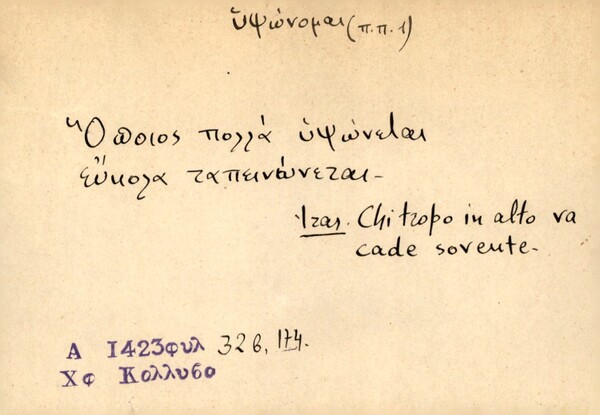 ὑψώνομαι (π.π. 1)
Ὅποιος πολλά ὑψώνεται
εὔκολα ταπεινώνεται-
Ἰταλ. Chi tropo in alto va
cade sovente-
Α 1423φυλ 32β, 174.
Χφ Κολλυβο